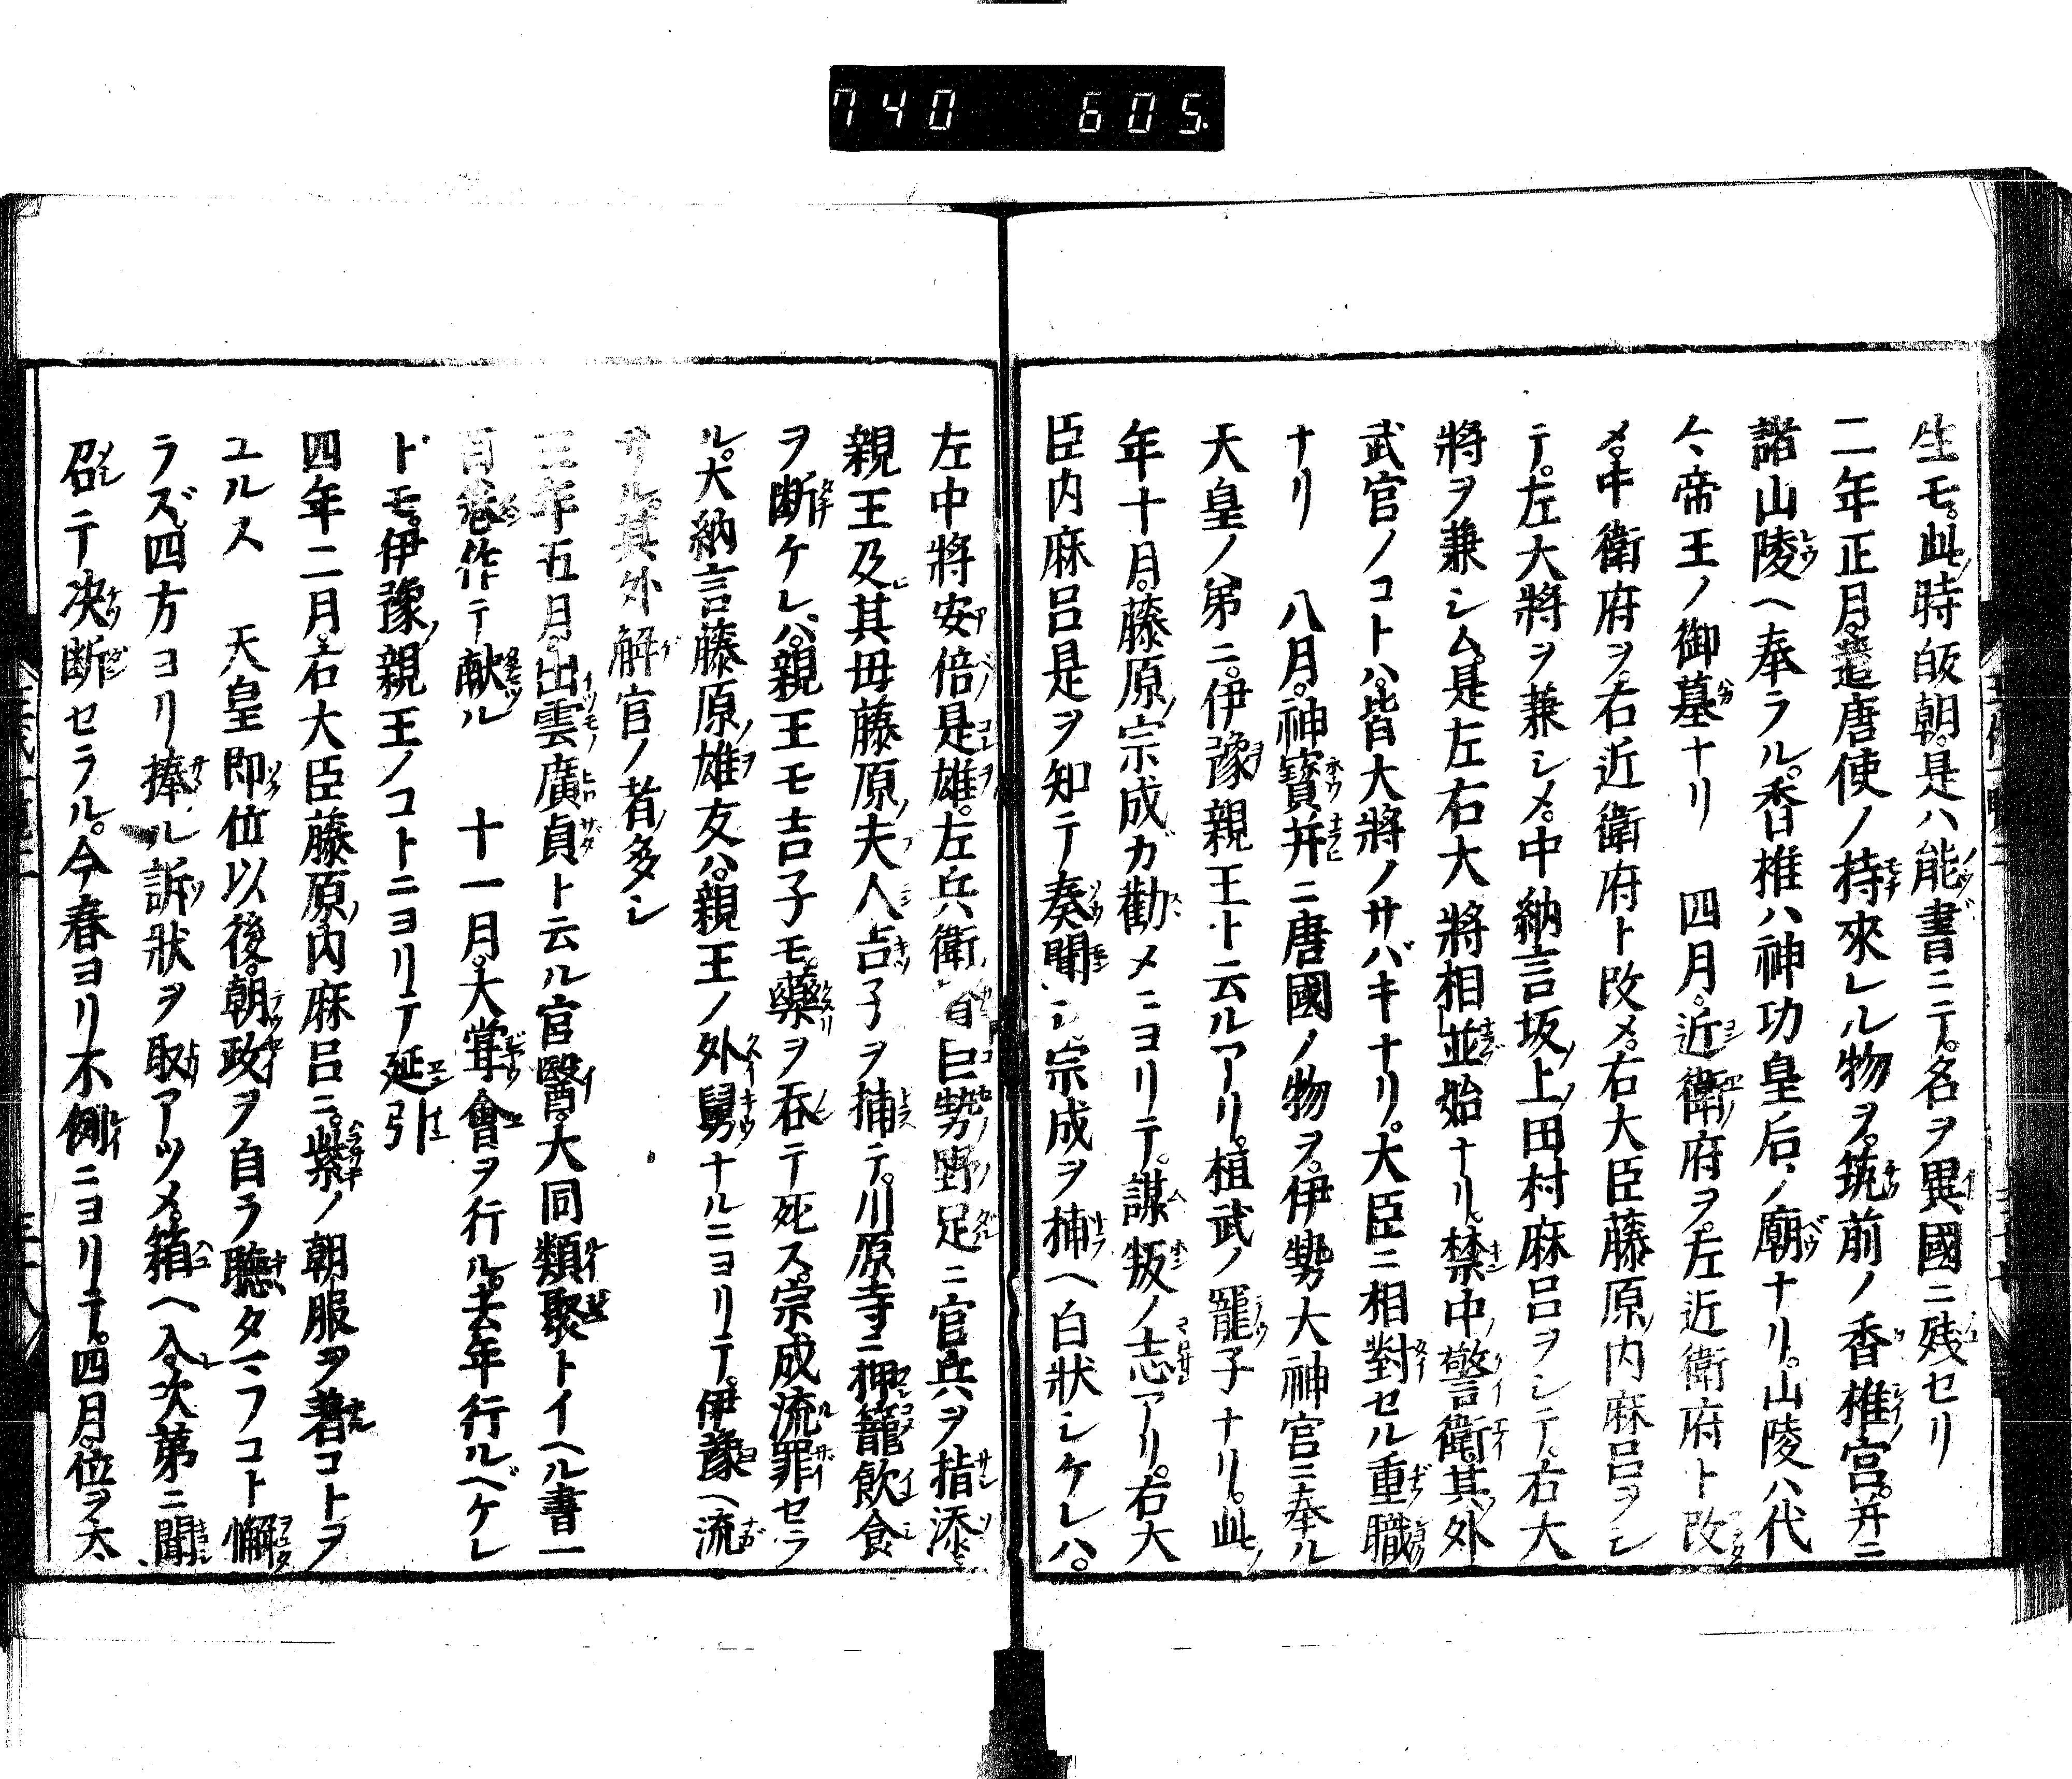 740 605.
生モ。此時皈朝。是ハ能書ニテ。名ヲ異國ニ残セリ
二年正月。遣唐使ノ持來レル物ヲ。筑前ノ香椎宮。并ニ
諸山陵ヘ奉ラル。香椎ハ神功皇后ノ廟ナリ。山陵ハ代
々帝王ノ御墓ナリ　四月。近衛府ヲ。左近衛府ト改
メ。中衛府ヲ。右近衛府ト改メ。右大臣藤原内麻呂ヲシ
テ。左大將ヲ兼シメ。中納言坂上田村麻呂ヲシテ。右大
將ヲ兼シム。是左右大將相並始ナリ。禁中警衛。其外
武官ノコトハ。皆大將ノサバキナリ。大臣ニ相對セル重職
ナリ　八月。神寳并ニ唐國ノ物ヲ。伊勢大神官ニ奉ル
天皇ノ弟ニ。伊豫親王ト云ルアリ。植武ノ寵子ナリ。此
年十月。藤原宗成ガ勸メニヨリテ。謀叛ノ志アリ。右大
臣内麻呂是ヲ知テ奏聞シ。宗成ヲ捕ヘ白状シケレハ。
左中將安倍是雄。左兵衛督巨勢野足ニ官兵ヲ指添
親王及其毋藤原夫人吉子ヲ捕テ。川原寺ニ押籠飲食
ヲ斷ケレバ。親王モ吉子モ。藥ヲ呑テ死ス。宗成流罪セラ
ル。大納言藤原雄友ハ。親王ノ外舅ナルニヨリテ。伊豫ヘ流
サル。其外解官ノ者多シ
三年五月。出雲廣貞ト云ル官醫。大同類聚トイヘル書一
百巻作テ献ル　十一月。大甞會ヲ行ル。去年行ルベケレ
ドモ。伊豫親王ノコトニヨリテ延引
四年二月。右大臣藤原内麻呂ニ。紫ノ朝服ヲ著コトヲ
ユルス　天皇即位以後。朝政ヲ自ラ聽タマフコト懈
ラズ。四方ヨリ捧ル訴狀ヲ取アツメ。箱ヘ入。次第ニ聞
召テ决断セラル。今春ヨリ不例ニヨリテ。四月。位ヲ太